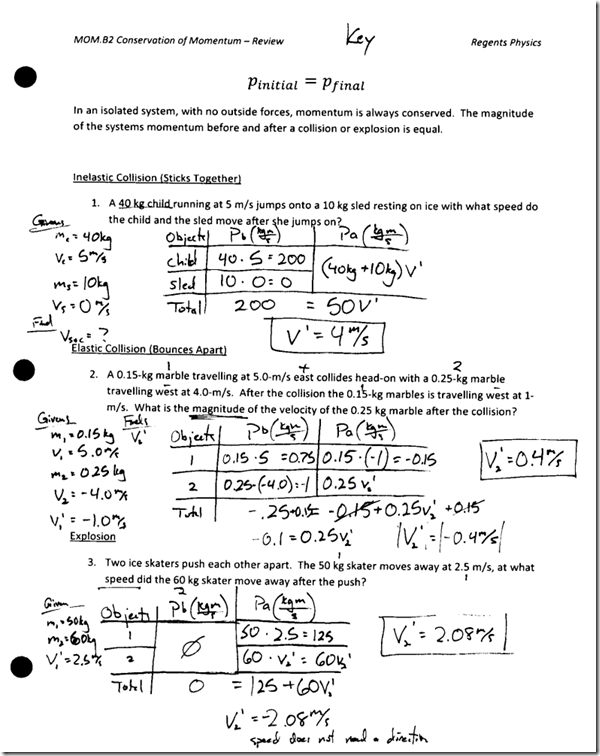 MOM.B2 Conservation of Momentum – Review Key Regents Physics
p_initial = p_final
In an isolated system, with no outside forces, momentum is always conserved. The magnitude
of the systems momentum before and after a collision or explosion is equal.
Inelastic Collision (Sticks Together)
1. A 40 kg child running at 5 m/s jumps onto a 10 kg sled resting on ice with what speed do
the child and the sled move after she jumps on?
Givens
m_c = 40kg
V_c = 5 m/s
m_s = 10kg
V_s = 0 m/s
Find
V_s&c = ?
Objects Pb (kgm/s) Pa (kgm/s)
child 40 · 5 = 200 (40kg+10kg)V'
sled 10 · 0 = 0
Total 200 = 50V'
V' = 4 m/s
Elastic Collision (Bounces Apart)
1 + 2
2. A 0.15-kg marble travelling at 5.0-m/s east collides head-on with a 0.25-kg marble
travelling west at 4.0-m/s. After the collision the 0.15-kg marbles is travelling west at 1-
m/s. What is the magnitude of the velocity of the 0.25 kg marble after the collision?
Givens
m₁ = 0.15 kg V₂'
V₁ = 5.0 m/s
m₂ = 0.25 kg
V₂ = -4.0 m/s
V₁' = -1.0 m/s
Objects Pb (kgm/s) Pa (kgm/s)
1 0.15 · 5 = 0.75 0.15 · (-1) = -0.15
2 0.25 · (-4.0) = -1 0.25 V₂'
Total -.25 +0.15 = -0.15 + 0.25V₂' +0.15
-0.1 = 0.25V₂' |V₂'| = |-0.4 m/s|
V₂' = 0.4 m/s
Explosion
3. Two ice skaters push each other apart. The 50 kg skater moves away at 2.5 m/s, at what
speed did the 60 kg skater move away after the push?
Given
m₁ = 50kg
m₂ = 60kg
V₁' = 2.5 m/s
Objects Pb (kgm/s) Pa (kgm/s)
1 Ø 50 · 2.5 = 125
2 60 · V₂' = 60V₂'
Total 0 = 125 + 60V₂'
V₂' = -2.08 m/s
speed does not need a direction
V₂' = 2.08 m/s